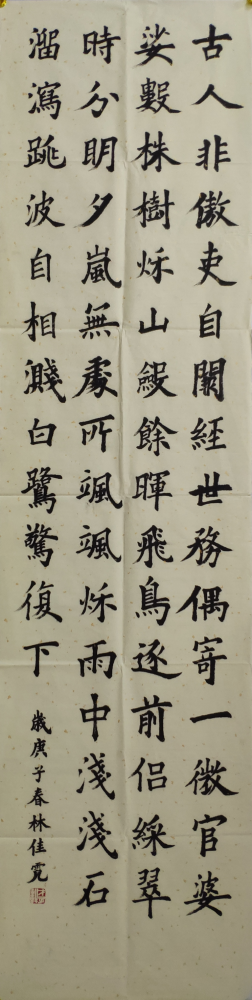 古人非傲吏自闕經世務偶寄一微官婆
娑數株樹秌山斂餘暉飛鳥逐前侶綵翠
時分明夕嵐無處所颯颯秌雨中淺淺石
溜瀉跳波自相濺白鷺驚復下
歲庚子春林佳霓